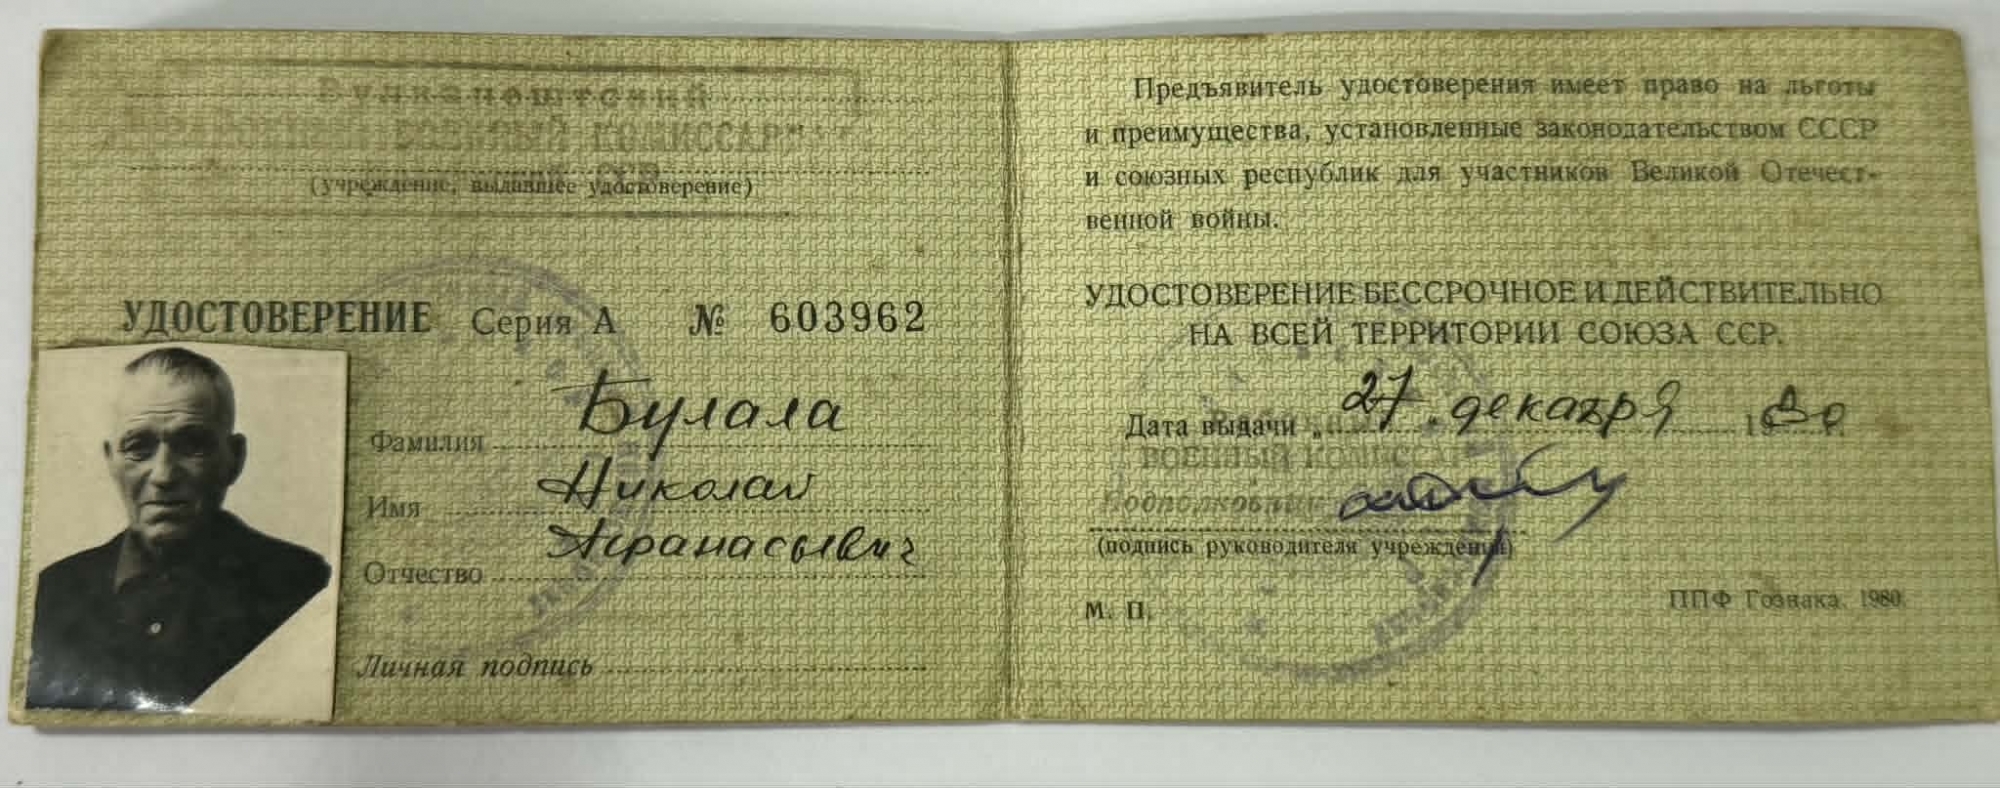 Вулканештский
районный ВОЕННЫЙ КОМИССАРИАТ
ССР
(учреждение, выдавшее удостоверение)
УДОСТОВЕРЕНИЕ Серия А № 603962
Фамилия Булала
Имя Николай
Отчество Афанасьевич
Личная подпись
Предъявитель удостоверения имеет право на льготы
и преимущества, установленные законодательством СССР
и союзных республик для участников Великой Отечест-
венной войны.
УДОСТОВЕРЕНИЕ БЕССРОЧНОЕ И ДЕЙСТВИТЕЛЬНО
НА ВСЕЙ ТЕРРИТОРИИ СОЮЗА ССР.
Дата выдачи „27" декабря 1980 г.
ВОЕННЫЙ КОМИССАР
Подполковник
(подпись руководителя учреждения)
М. П.
ППФ Гознака. 1980.